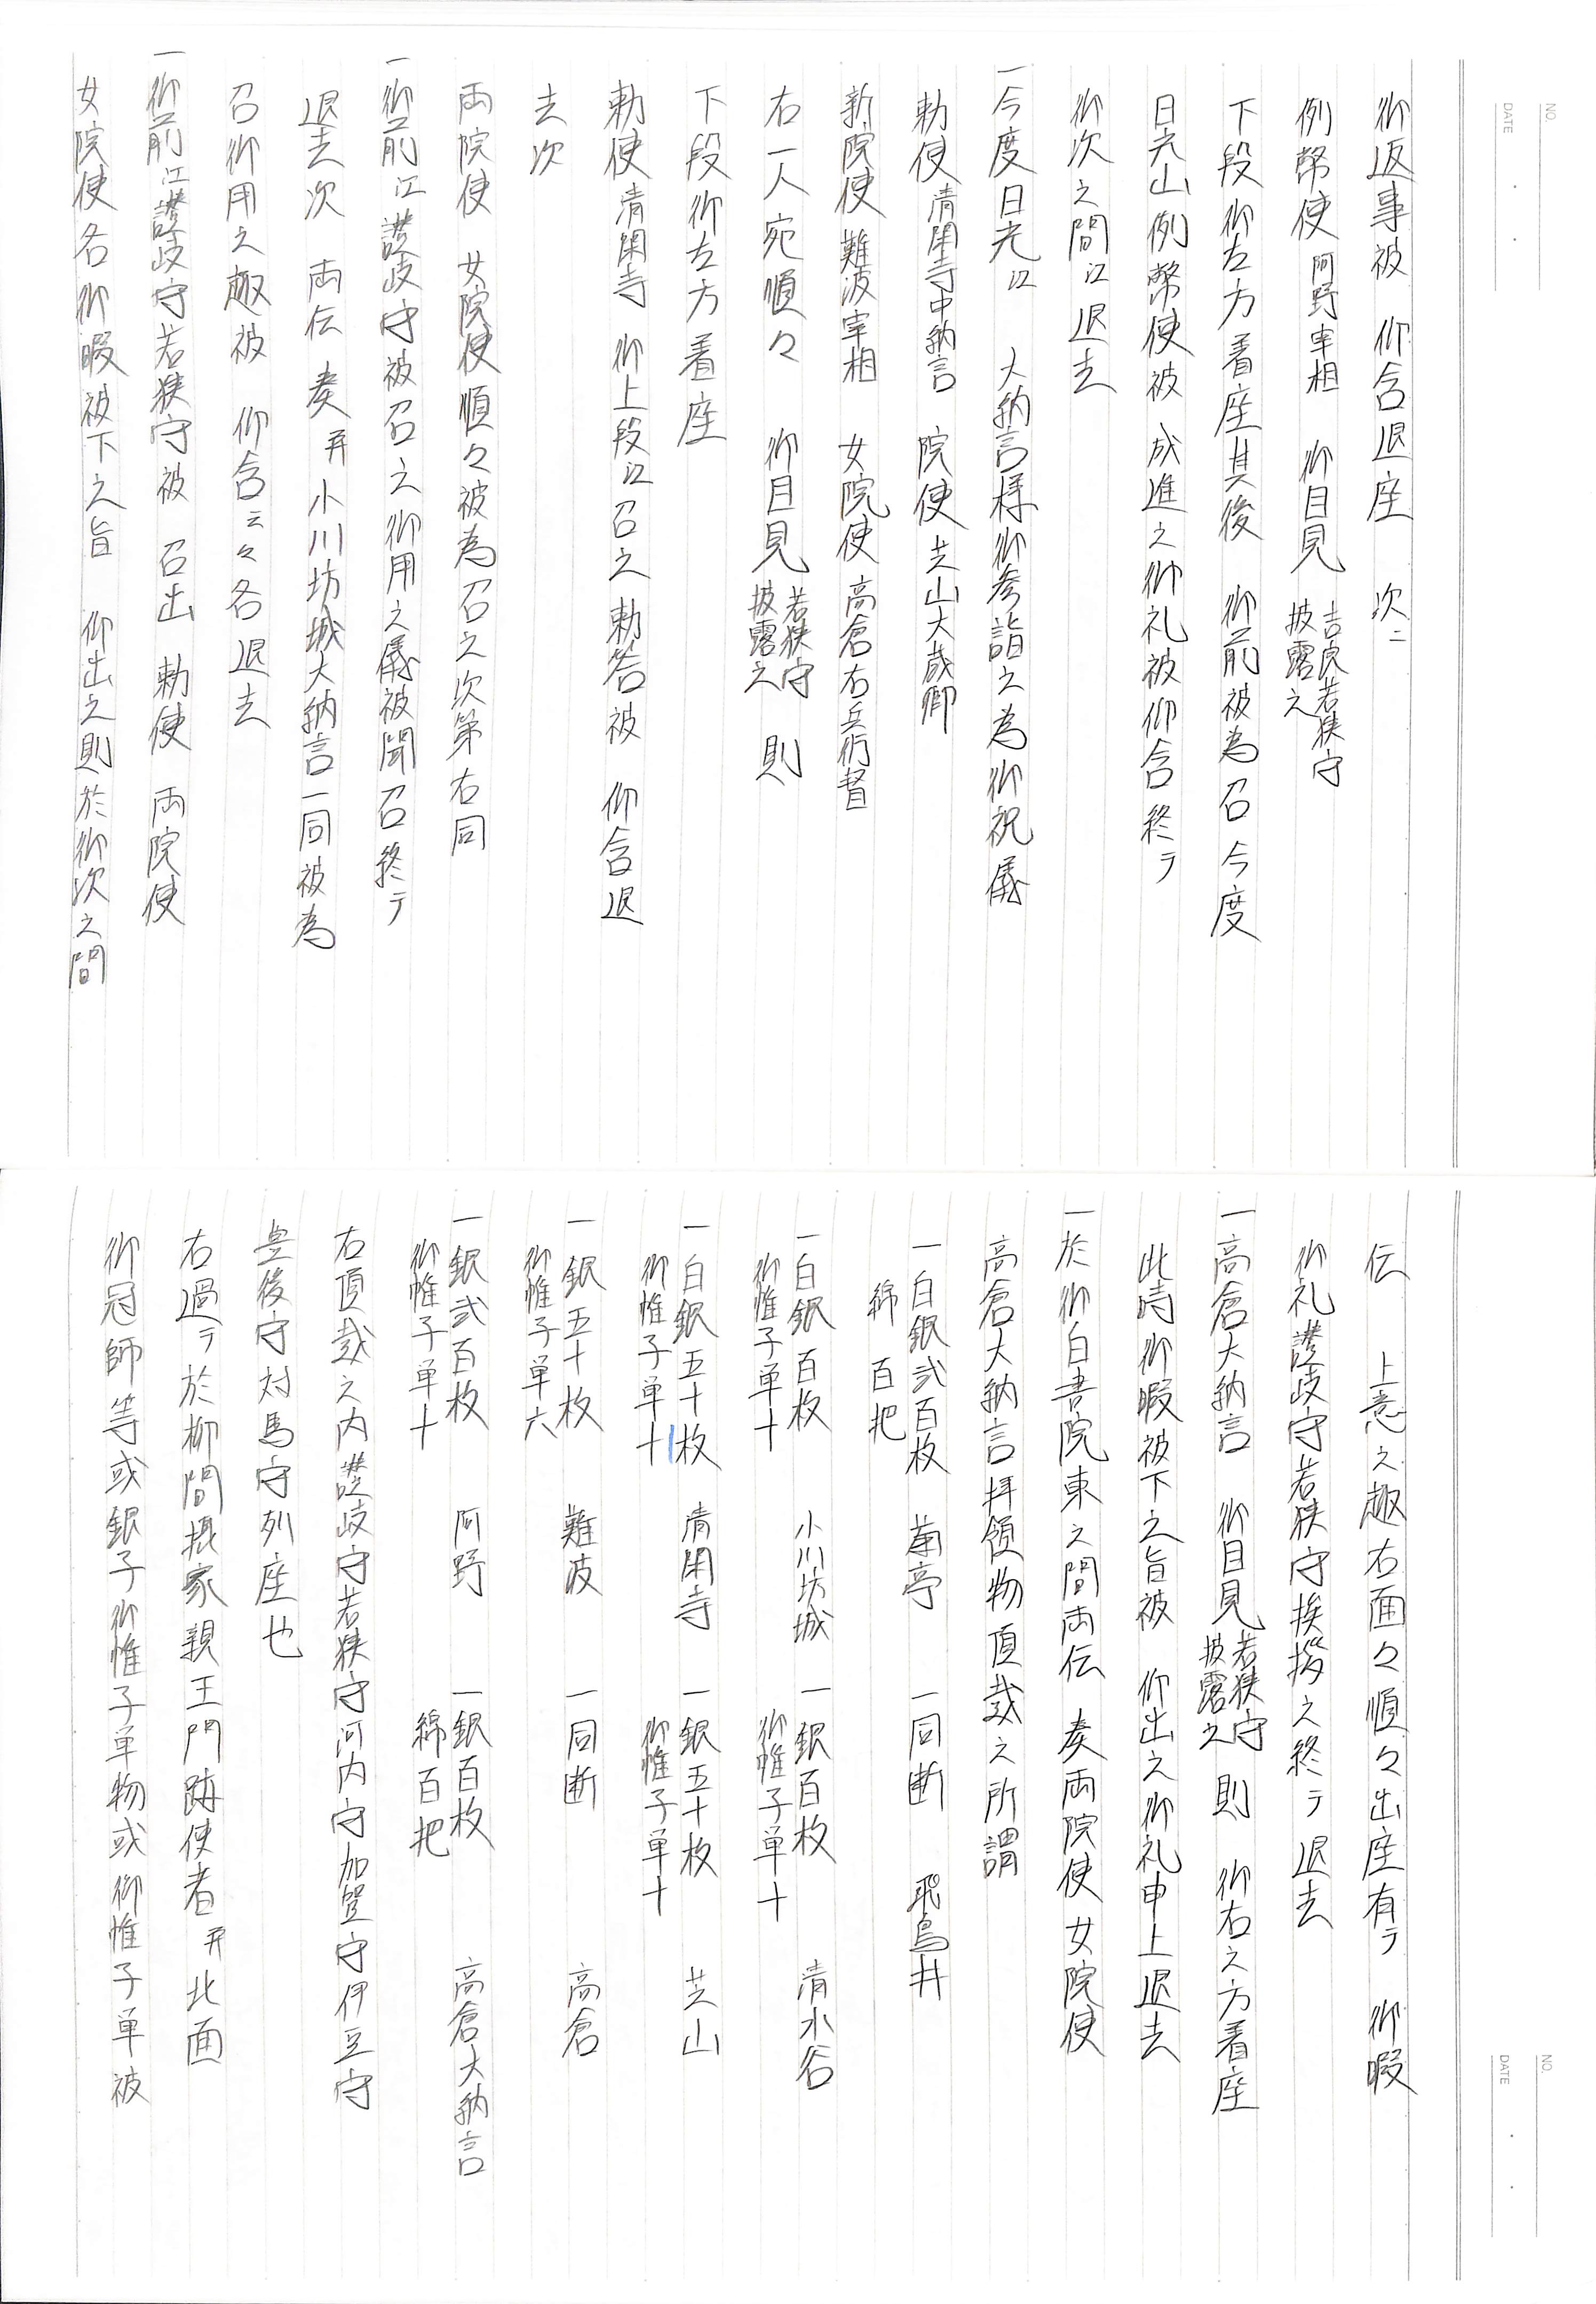 NO.
DATE
御返事被　仰含退座　次ニ
例幣使 阿野宰相　御目見 吉良若狭守
披露之
下段御左方着座其後　御前被為召今度
日光山例幣使被　成進之御礼被仰含終テ
御次之間江退去
一今度日光江　大納言様御参詣之為御祝儀
勅使 清閑寺中納言　院使 芝山大蔵卿
新院使 難波宰相　女院使 高倉右兵衛督
右一人宛順々　御目見 若狭守
披露之　則
下段御左方着座
勅使 清閑寺　御上段江召之勅答被　仰含退
去次
両院使　女院使順々被為召之次第右同
一御前江讃岐守被召之御用之儀被聞召終テ
退去次　両伝　奏 并 小川坊城大納言一同被為
召御用之趣被　仰含云々各退去
一御前江讃岐守若狭守被　召出　勅使　両院使
女院使各御暇被下之旨　仰出之則於御次之間
NO.
DATE
伝　上意之趣右面々順々出座有テ　御暇
御礼讃岐守若狭守挨拶之終テ退去
一高倉大納言　御目見 若狭守
披露之　則　御右之方着座
此時御暇被下之旨被　仰出之御礼申上退去
一於御白書院東之間両伝　奏両院使女院使
高倉大納言拝領物頂戴之所謂
一白銀弐百枚　菊亭　一同断　飛鳥井
綿　百把
一白銀百枚　小川坊城　一銀百枚　清水谷
御帷子単十　御帷子単十
一白銀五十枚　清閑寺　一銀五十枚　芝山
御帷子単十　御帷子単十
一銀五十枚　難波　一同断　高倉
御帷子単六
一銀弐百枚　阿野　一銀百枚　高倉大納言
御帷子単十　綿百把
右頂戴之内讃岐守若狭守河内守加賀守伊豆守
豊後守対馬守列座也
右過テ於柳間摂家親王門跡使者 并 北面
御冠師等或銀子御帷子単物或御帷子単被